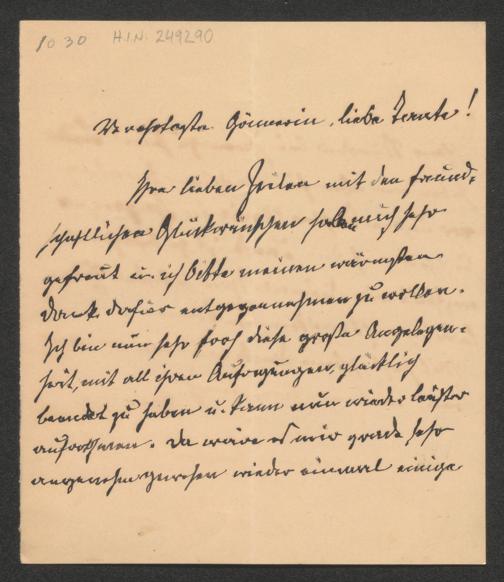 1030 H.I.N. 249290
Verehrteste Gönnerin, liebe Tante!
Ihre lieben Zeilen mit den freund-
schaftlichen Glückwünschen haben mich sehr
gefreut u. ich bitte meinen wärmsten
Dank dafür entgegennehmen zu wollen.
Ich bin nun sehr froh diese große Angelegen-
heit, mit all ihren Aufregungen, glücklich
beendet zu haben u. kann nun wieder leichter
aufathmen. Da wäre es mir grade sehr
angenehm gewesen wieder einmal einige